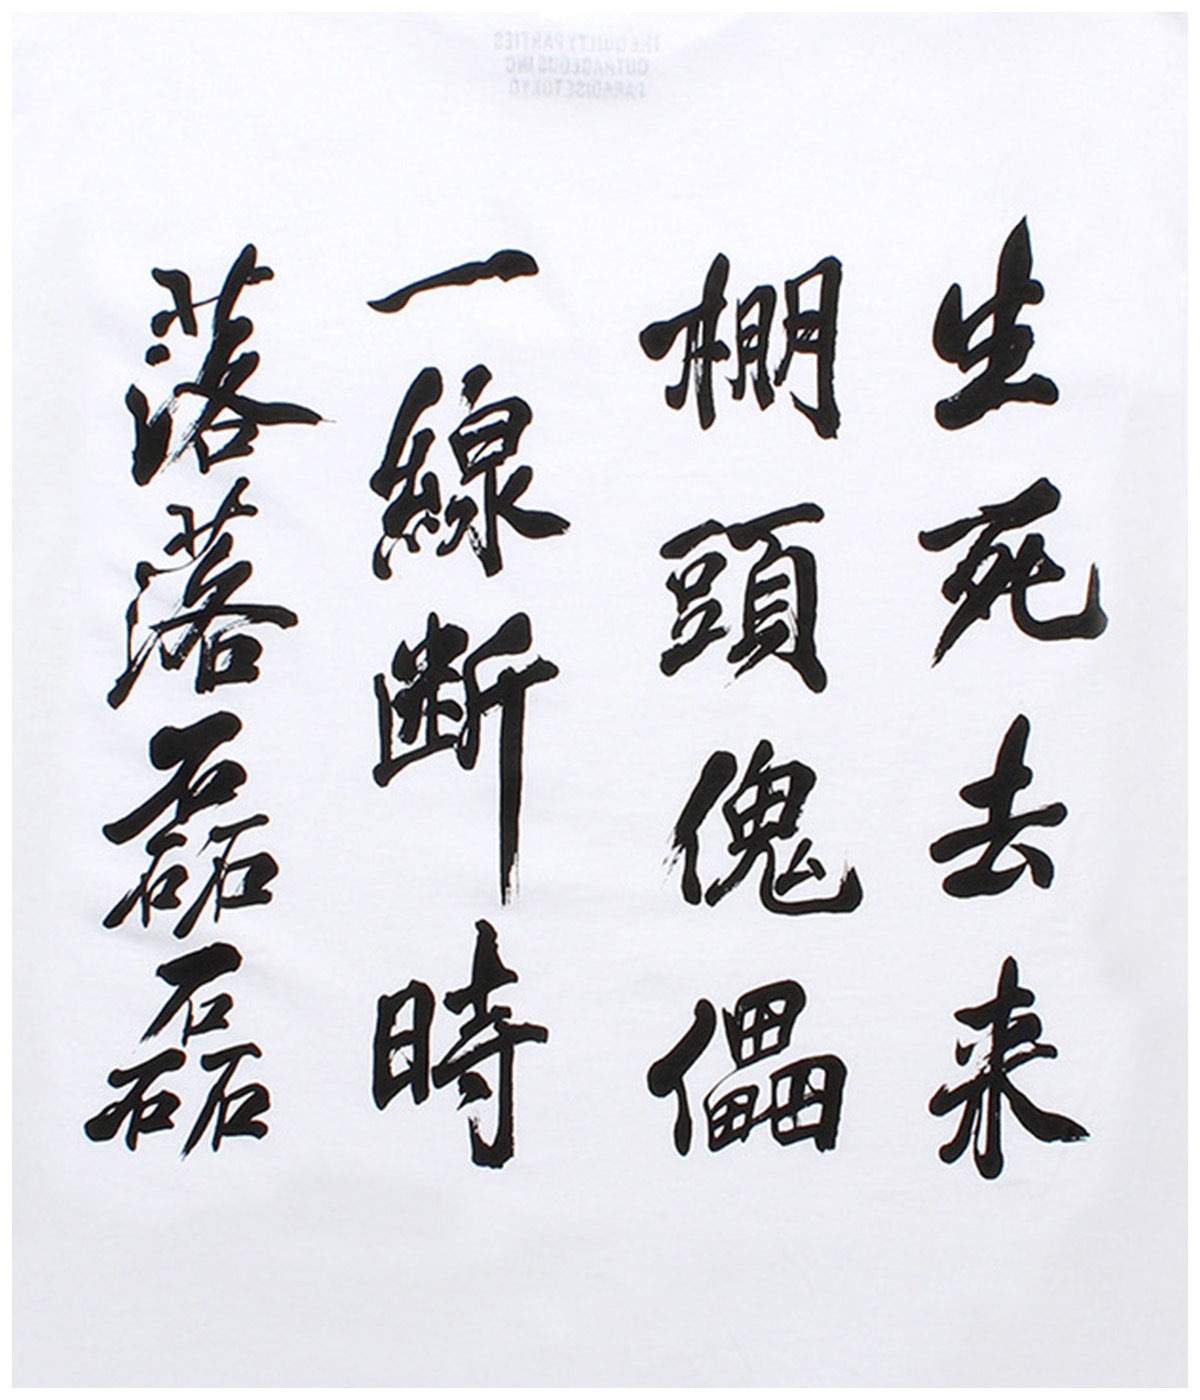 THE GUILTY PARTIES
OUTRAGEOUS INC
PARADISE TOKYO
生死去来
棚頭傀儡
一線断時
落落磊磊